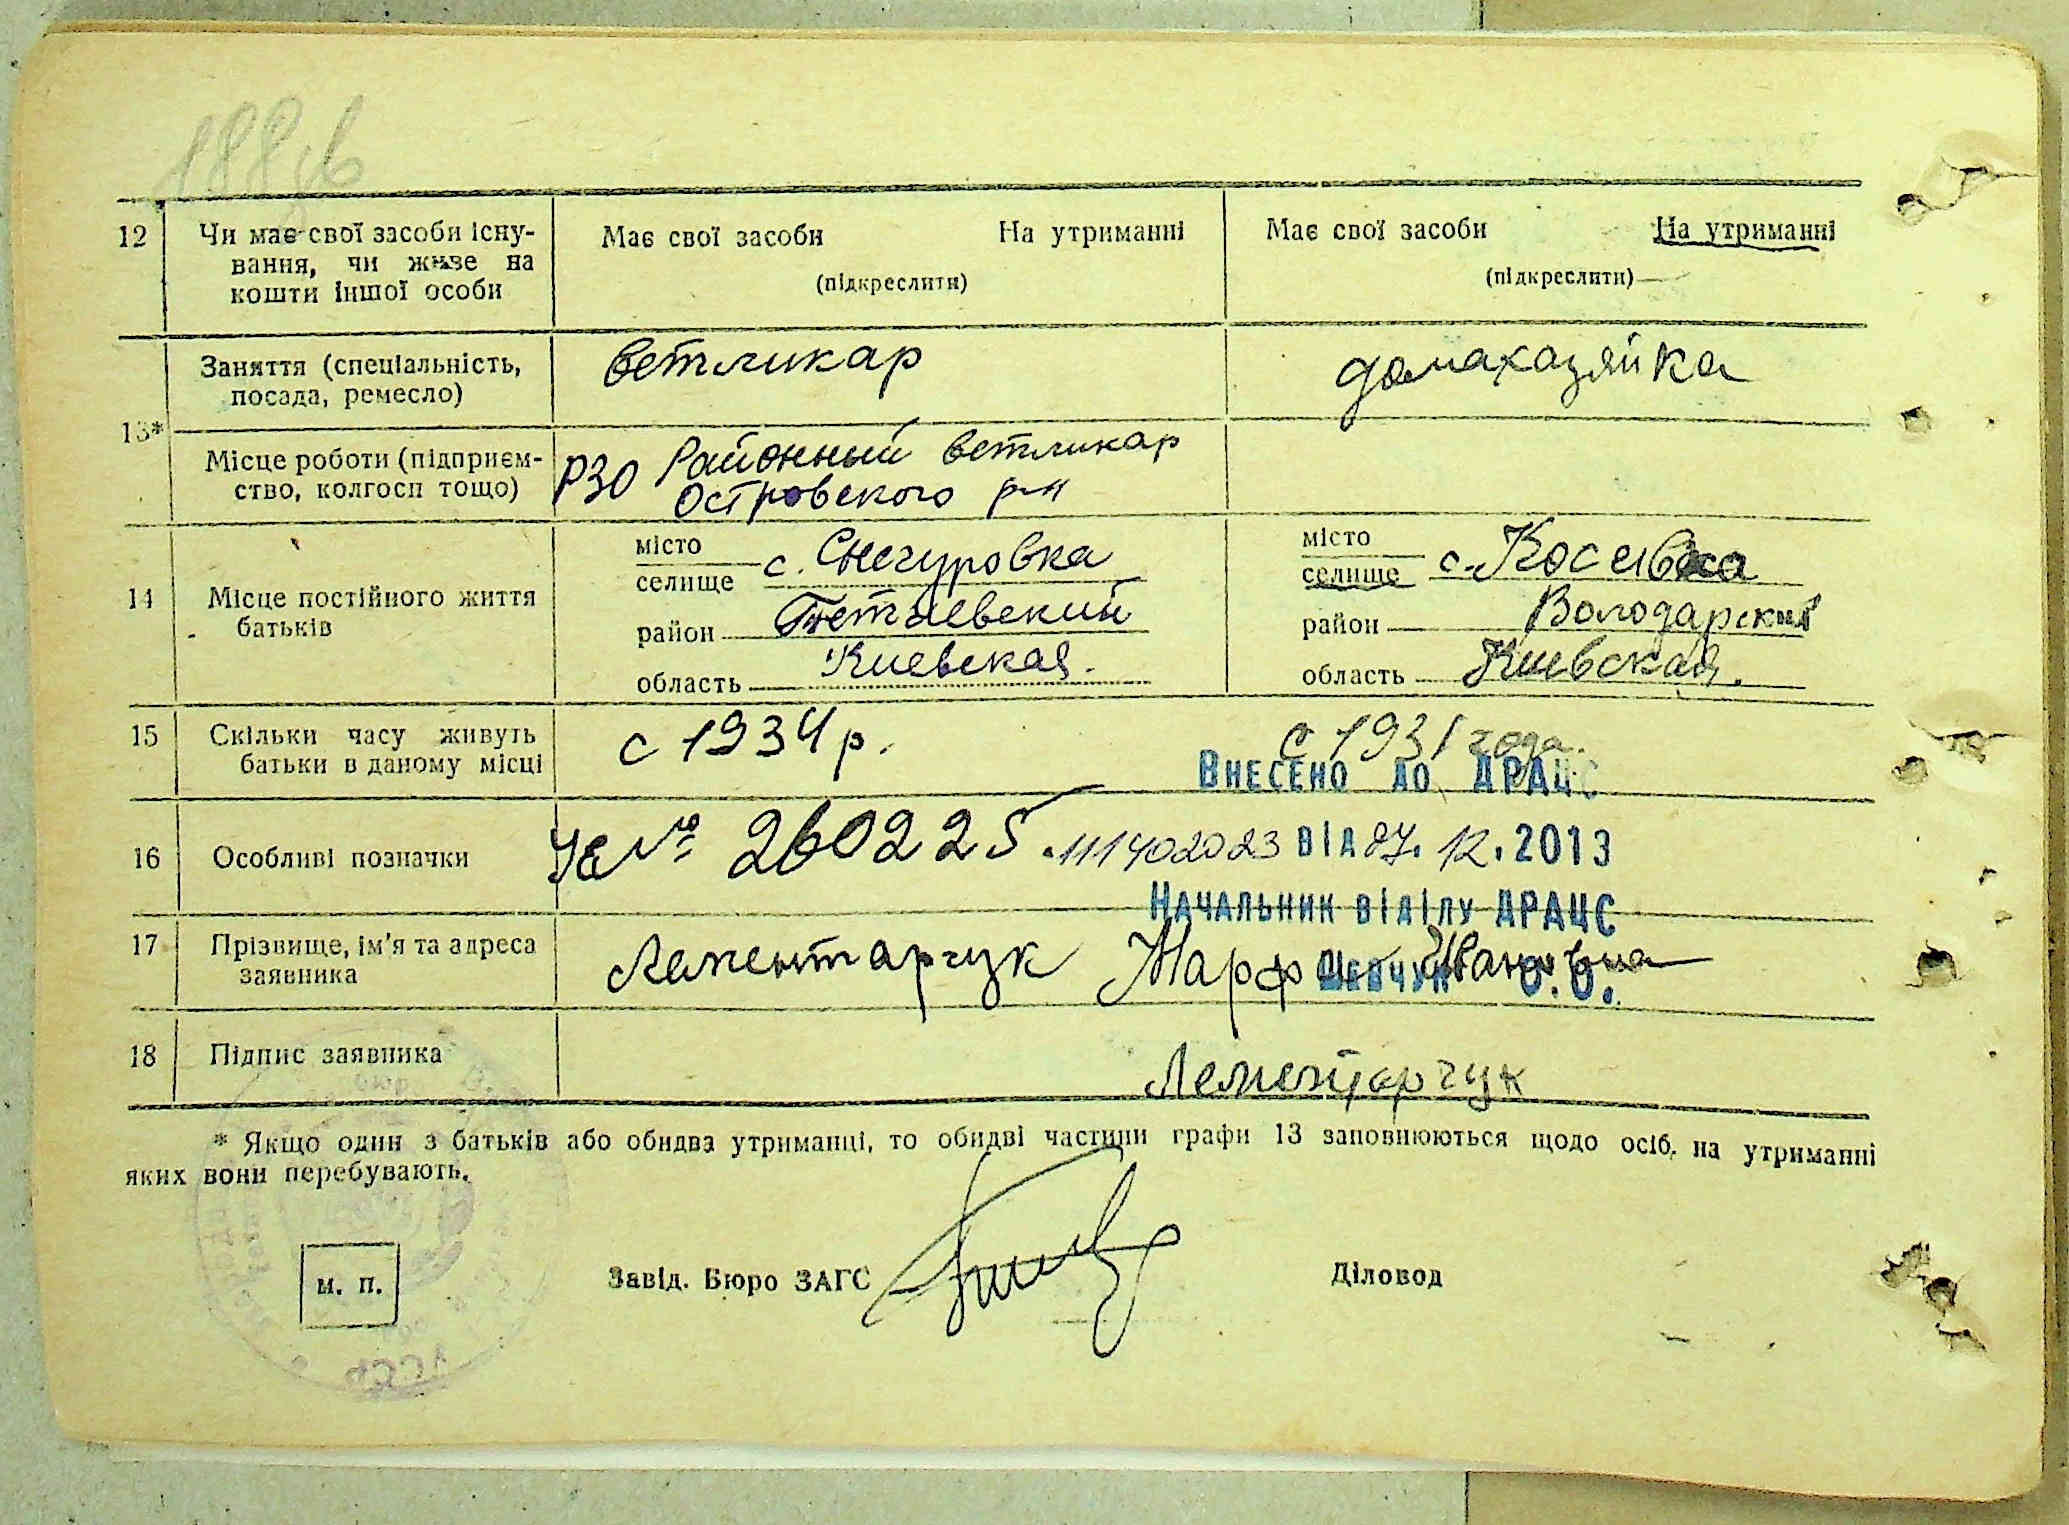 188зв
12
Чи має свої засоби існу-
вання, чи живе на
кошти іншої особи
Має свої засоби На утриманні
(підкреслити)
Має свої засоби На утриманні
(підкреслити)
13*
Заняття (спеціальність,
посада, ремесло)
ветликар
домахазяйка
Місце роботи (підприєм-
ство, колгосп тощо)
РЗО Районный ветликар
Островского р-н
14
Місце постійного життя
батьків
місто
селище с. Снегуровка
район
область Киевская.
місто
селище с. Косевка
район Володарский
область Киевская.
15
Скільки часу живуть
батьки в даному місці
с 1934 р.
с 1931 года.
Внесено до ДРАЦС
16
Особливі позначки
№ 260225
111402023 від 27.12.2013
Начальник відділу ДРАЦС
17
Прізвище, ім'я та адреса
заявника
Лементарчук Марфа Ивановна
Шевчук О.О.
18
Підпис заявника
Лементарчук
* Якщо один з батьків або обидва утриманці, то обидві частини графи 13 заповнюються щодо осіб, на утриманні
яких вони перебувають.
м. п.
Завід. Бюро ЗАГС
Діловод